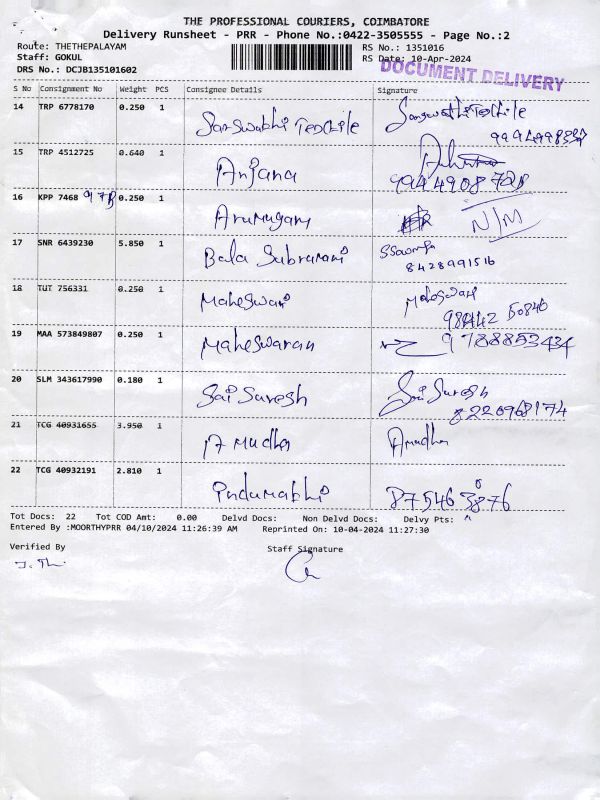 THE PROFESSIONAL COURIERS, COIMBATORE
Delivery Runsheet - PRR - Phone No.:0422-3505555 - Page No.:2
Route: THETHEPALAYAM RS No.: 1351016
Staff: GOKUL RS Date: 10-Apr-2024
DRS No.: DCJB135101602 DOCUMENT DELIVERY
S No Consignment No Weight PCS Consignee Details Signature
14 TRP 6778170 0.250 1 Saraswathi Textile Saraswathi Textile
15 TRP 4512725 0.640 1 Anjana
16 KPP 7468 0.250 1 Arumugam N/M
17 SNR 6439230 5.850 1 Bala Subramani
8428991516
18 TUT 756331 0.250 1 Maheswari Maheswari
98442 50846
19 MAA 573849807 0.250 1 Maheswaran 9788853434
20 SLM 343617990 0.180 1 Sai Suresh Sai Suresh
8220968174
21 TCG 40931655 3.950 1 Amudha Amudha
22 TCG 40932191 2.810 1 Indumathi
Tot Docs: 22 Tot COD Amt: 0.00 Delvd Docs: Non Delvd Docs: Delvy Pts:
Entered By :MOORTHYPRR 04/10/2024 11:26:39 AM Reprinted On: 10-04-2024 11:27:30
Verified By Staff Signature